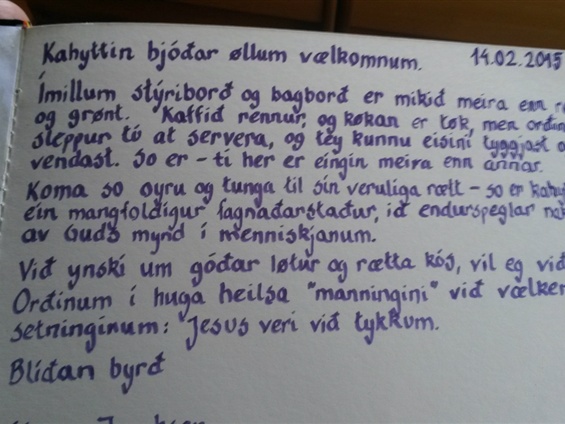 Kahyttin bjóðar øllum vælkomnum. 14.02.2015
Ímillum stýriborð og bagborð er mikið meira enn
og grønt. Kaffið rennur, og køkan er tøk, men
sleppur tú at servera, og tey kunnu eisini tyggjast
vendast. So er - tí her er eingin meira enn annar.
Koma so oyru og tunga til sín veruliga rætt - so er
ein mangfoldigur fagnaðarstaður, ið endurspeglar
av Guds mynd í menniskjanum.
Við ynski um góðar løtur og rætta kós, vil eg við
Orðinum í huga heilsa "manningini" við
setninginum: Jesus veri við tykkum.
Blíðan byrð